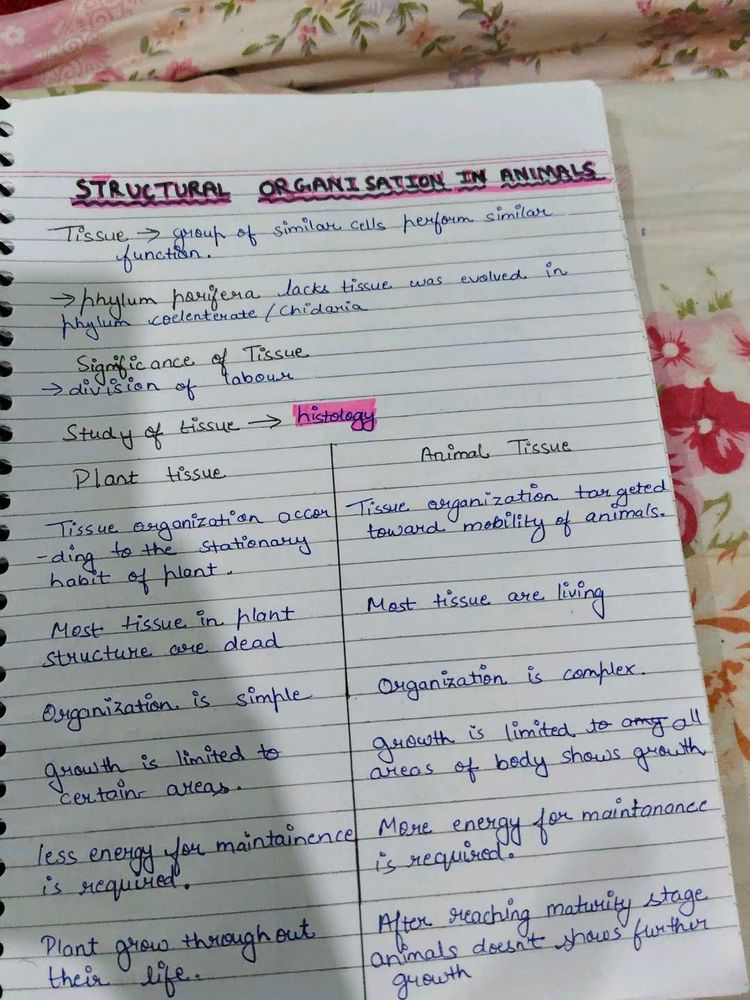 STRUCTURAL ORGANISATION IN ANIMALS
Tissue → group of similar cells perform similar
function.
→ phylum porifera lacks tissue was evolved in
phylum coelenterate / Chidaria
Significance of Tissue
→ division of labour
Study of tissue → histology
Plant tissue
Tissue organization accor
-ding to the stationary
habit of plant.
Most tissue in plant
structure are dead
Organization is simple
growth is limited to
certain areas.
less energy for maintainence
is required.
Plant grow throughout
their life.
Animal Tissue
Tissue organization targeted
toward mobility of animals.
Most tissue are living
Organization is complex.
growth is limited to any all
areas of body shows growth
More energy for maintanance
is required.
After reaching maturity stage
animals doesn't shows further
growth